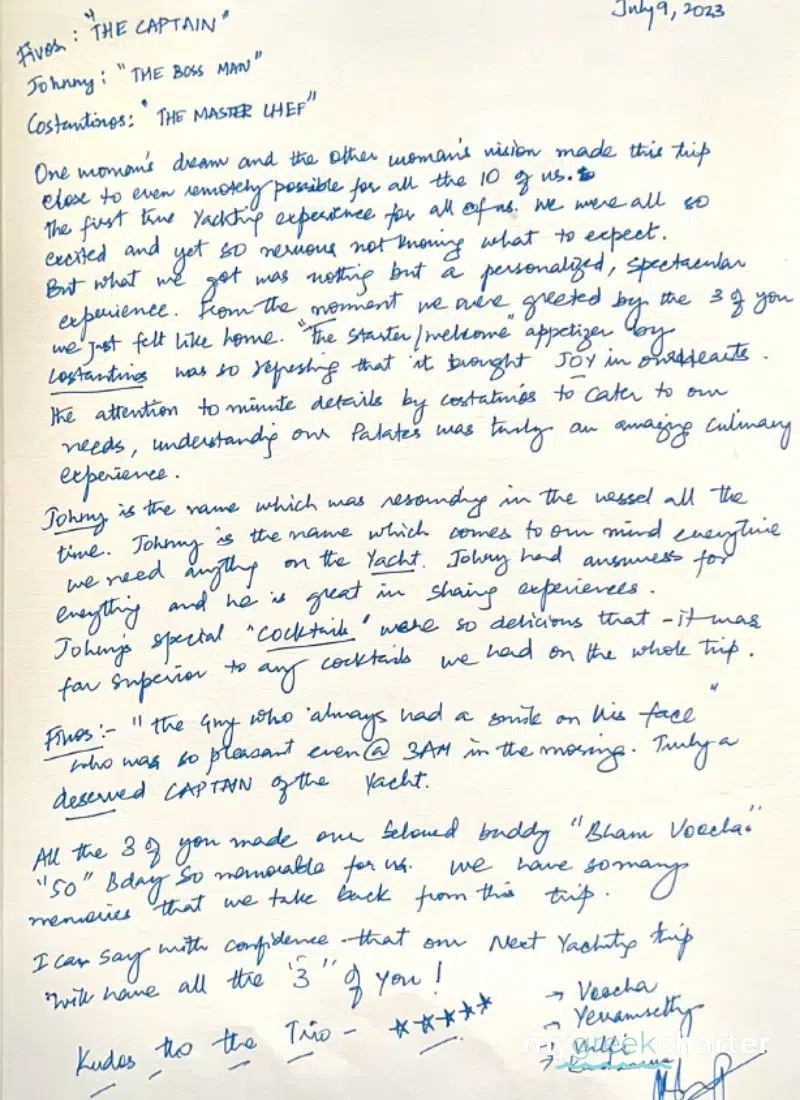 July 9, 2023
Fivos: "THE CAPTAIN"
Johnny: "THE BOSS MAN"
Costantinos: "THE MASTER CHEF"
One woman's dream and the other woman's vision made this trip
close to even remotely possible for all the 10 of us.
The first time Yachting experience for all of us. We were all so
excited and yet so nervous not knowing what to expect.
But what we got was nothing but a personalized, spectacular
experience. From the moment we were greeted by the 3 of you
we just felt like home. "The starter/welcome" appetizer by
Costantino was so refreshing that it brought JOY in our hearts.
The attention to minute details by costatinos to cater to our
needs, understanding our Palates was truly an amazing culinary
experience.
Johny is the name which was resounding in the vessel all the
time. Johnny is the name which comes to our mind everytime
we need anything on the Yacht. Johny had answers for
everything and he is great in sharing experiences.
Johny's special "Cocktails" were so delicious that - it was
far superior to any cocktails we had on the whole trip.
Fivos:- "the Guy who always had a smile on his face"
who was so pleasant even @ 3AM in the morning. Truly a
deserved CAPTAIN of the Yacht.
All the 3 of you made our beloved buddy "Bham Voocha"
"50" Bday so memorable for us. We have so many
memories that we take back from this trip.
I can say with confidence that our Next Yachting trip
will have all the "3" of you!
Kudos to the Trio - ★★★★★
→ Voocha
→ Yerramsetty
→
→
mygreekcharter